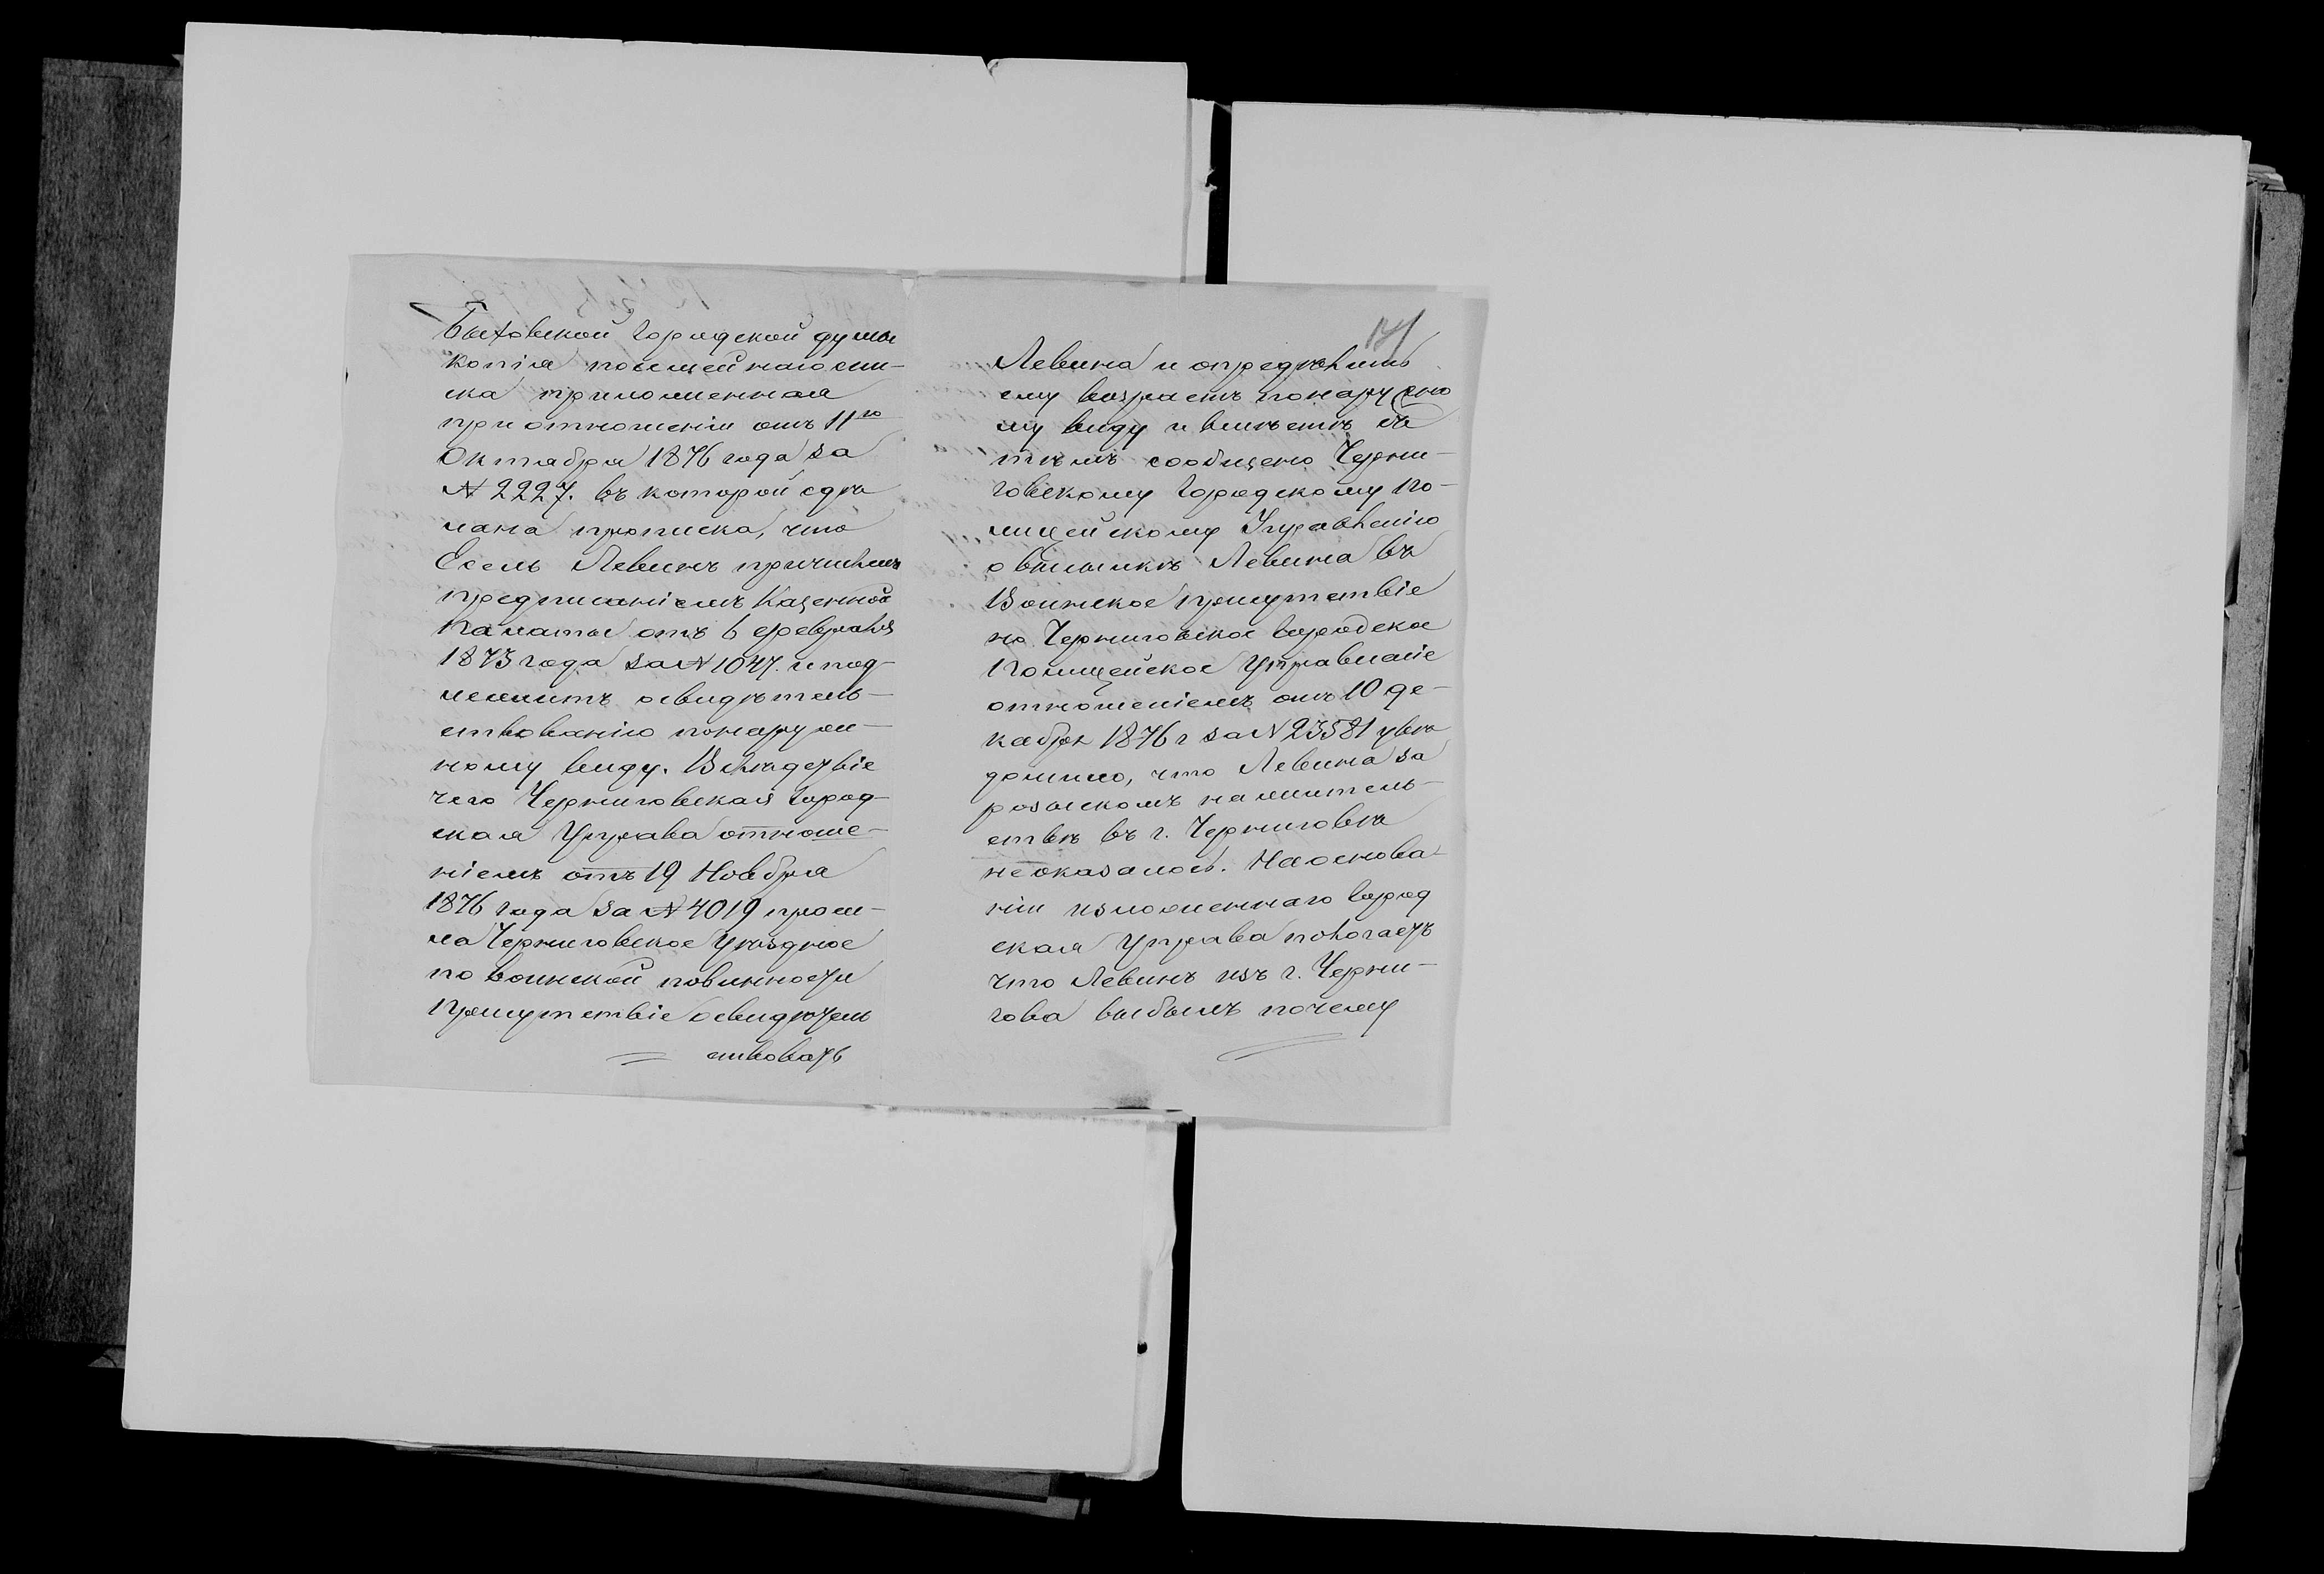 Быховской городской думы
копія посемейнаго спи-
ска приложенная
при отношеніи отъ 11го
Октября 1876 года за
№ 2227. въ которой сдѣ
лана прописка, что
Есель Левинъ причисленъ
предписаніемъ Казенной
Палаты отъ 6 февраля
1873 года за № 1047. и под-
лежитъ освидѣтель-
ствованію по наруж-
ному виду. Вслѣдствіе
чего Черниговская Город-
ская Управа отноше-
ніемъ отъ 19 Ноября
1876 года за № 4019 проси-
ла Черниговское Уѣздное
по воинской повинности
Присутствіе освидѣтель
ствовать
141
Левина и опредѣлить
ему возрастъ по наружно
му виду и вмѣстѣ съ
тѣмъ сообщено Черни-
говскому Городскому По-
лицейскому Управленію
о высылкѣ Левина въ
Воинское присутствіе
но Черниговское Городское
Полицейское Управленіе
отношеніемъ отъ 10 де-
кабря 1876 г за № 23581 увѣ
домило, что Левина за
розыскомъ на житель-
ствѣ въ г. Черниговѣ
не оказалось. На основа-
ніи изложеннаго Город
ская Управа полагаетъ
что Левинъ изъ г. Черни-
гова выбылъ почему